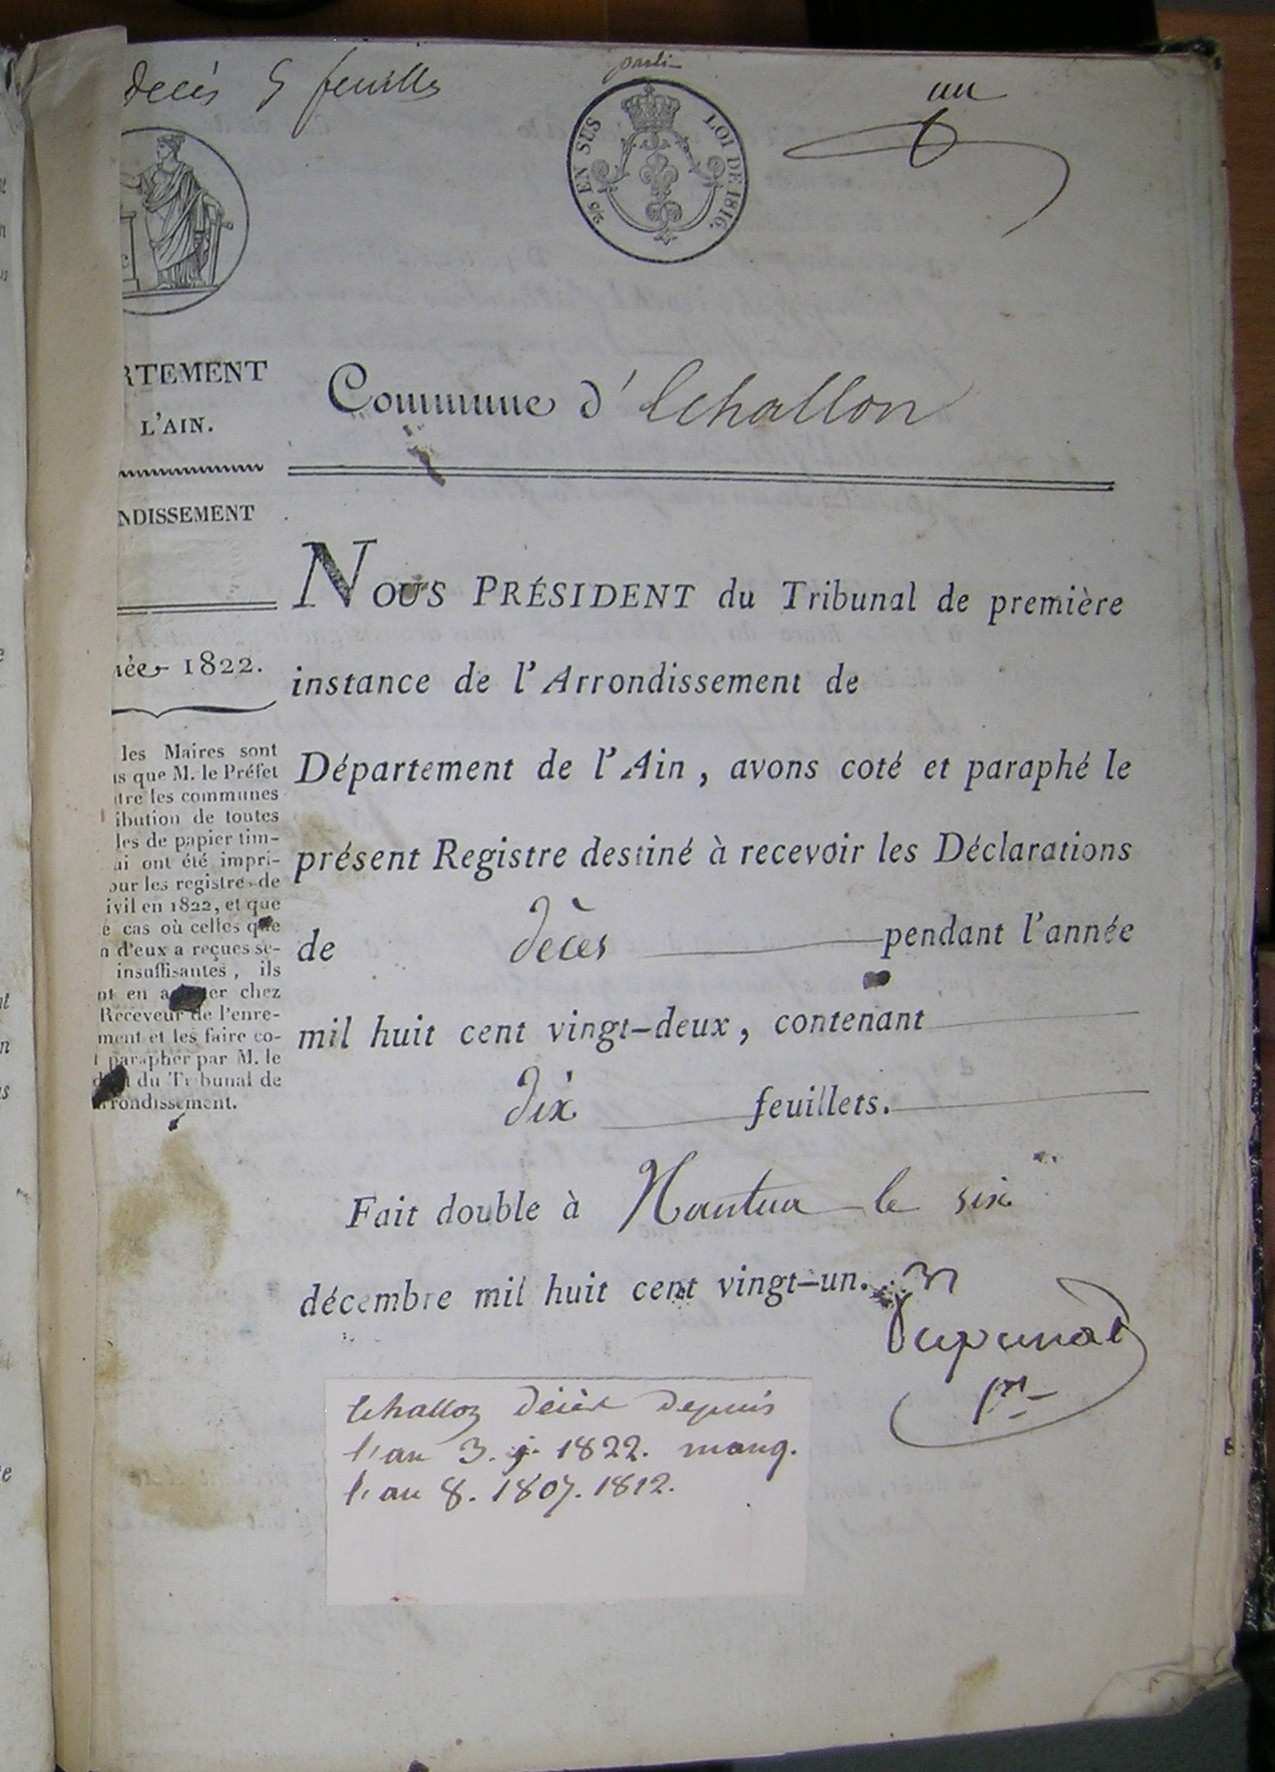 decès 5 feuilles
un
5/2 EN SUS LOI DE 1816.
RTEMENT
L'AIN.
NDISSEMENT
née 1822.
les Maires sont
ns que M. le Préfet
tre les communes
ibution de toutes
les de papier tim-
ai ont été impri-
our les registres de
ivil en 1822, et que
e cas où celles que
n d'eux a reçues se-
insuffisantes, ils
nt en acheter chez
Receveur de l'enre-
ment et les faire co-
t parapher par M. le
du Tribunal de
rrondissement.
Commune d'Echallon
NOUS PRÉSIDENT du Tribunal de première
instance de l'Arrondissement de
Département de l'Ain, avons coté et paraphé le
présent Registre destiné à recevoir les Déclarations
de décès pendant l'année
mil huit cent vingt-deux, contenant
dix feuillets.
Fait double à Nantua le six
décembre mil huit cent vingt-un.
Echallon décès depuis
l'an 3. 1822. manq.
l'an 8. 1807. 1812.